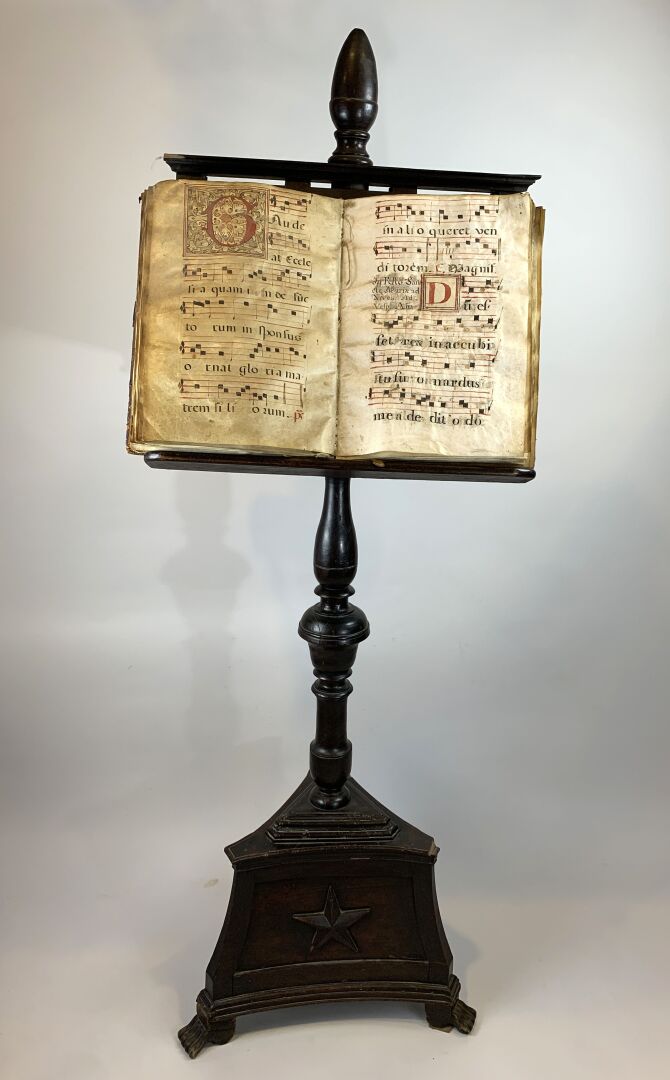 G
Au de
at Eccle
si a quam i n de suc
to rum in sponsus
o rnat glo ria ma
trem fi li o rum. ps
in a li o queret ven
di torem. Magnif
D
um es
set rex in accubi
tu su o nardus
me a de dit o do